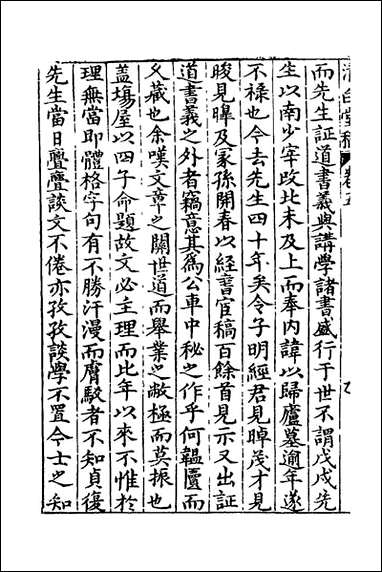 清白堂稿 卷五
而先生証道書義與講學諸書盛行于世不謂戊戌先
生以南少宰改北未及上而奉内諱以歸廬墓逾年遂
不祿也今去先生四十年矣令子明經君見晫茂才見
晙見暐及冢孫開春以經書官稿百餘首見示又出証
道書義之外者竊意其爲公車中秘之作乎何韞匵而
乆藏也余嘆文章之關世道而舉業之敝極而莫振也
盖塲屋以四子命題故文必主理而比年以來不惟於
理無當即體格字句有不勝汗漫而膚駁者不知貞復
先生當日亹亹談文不倦亦孜孜談學不置今士之知